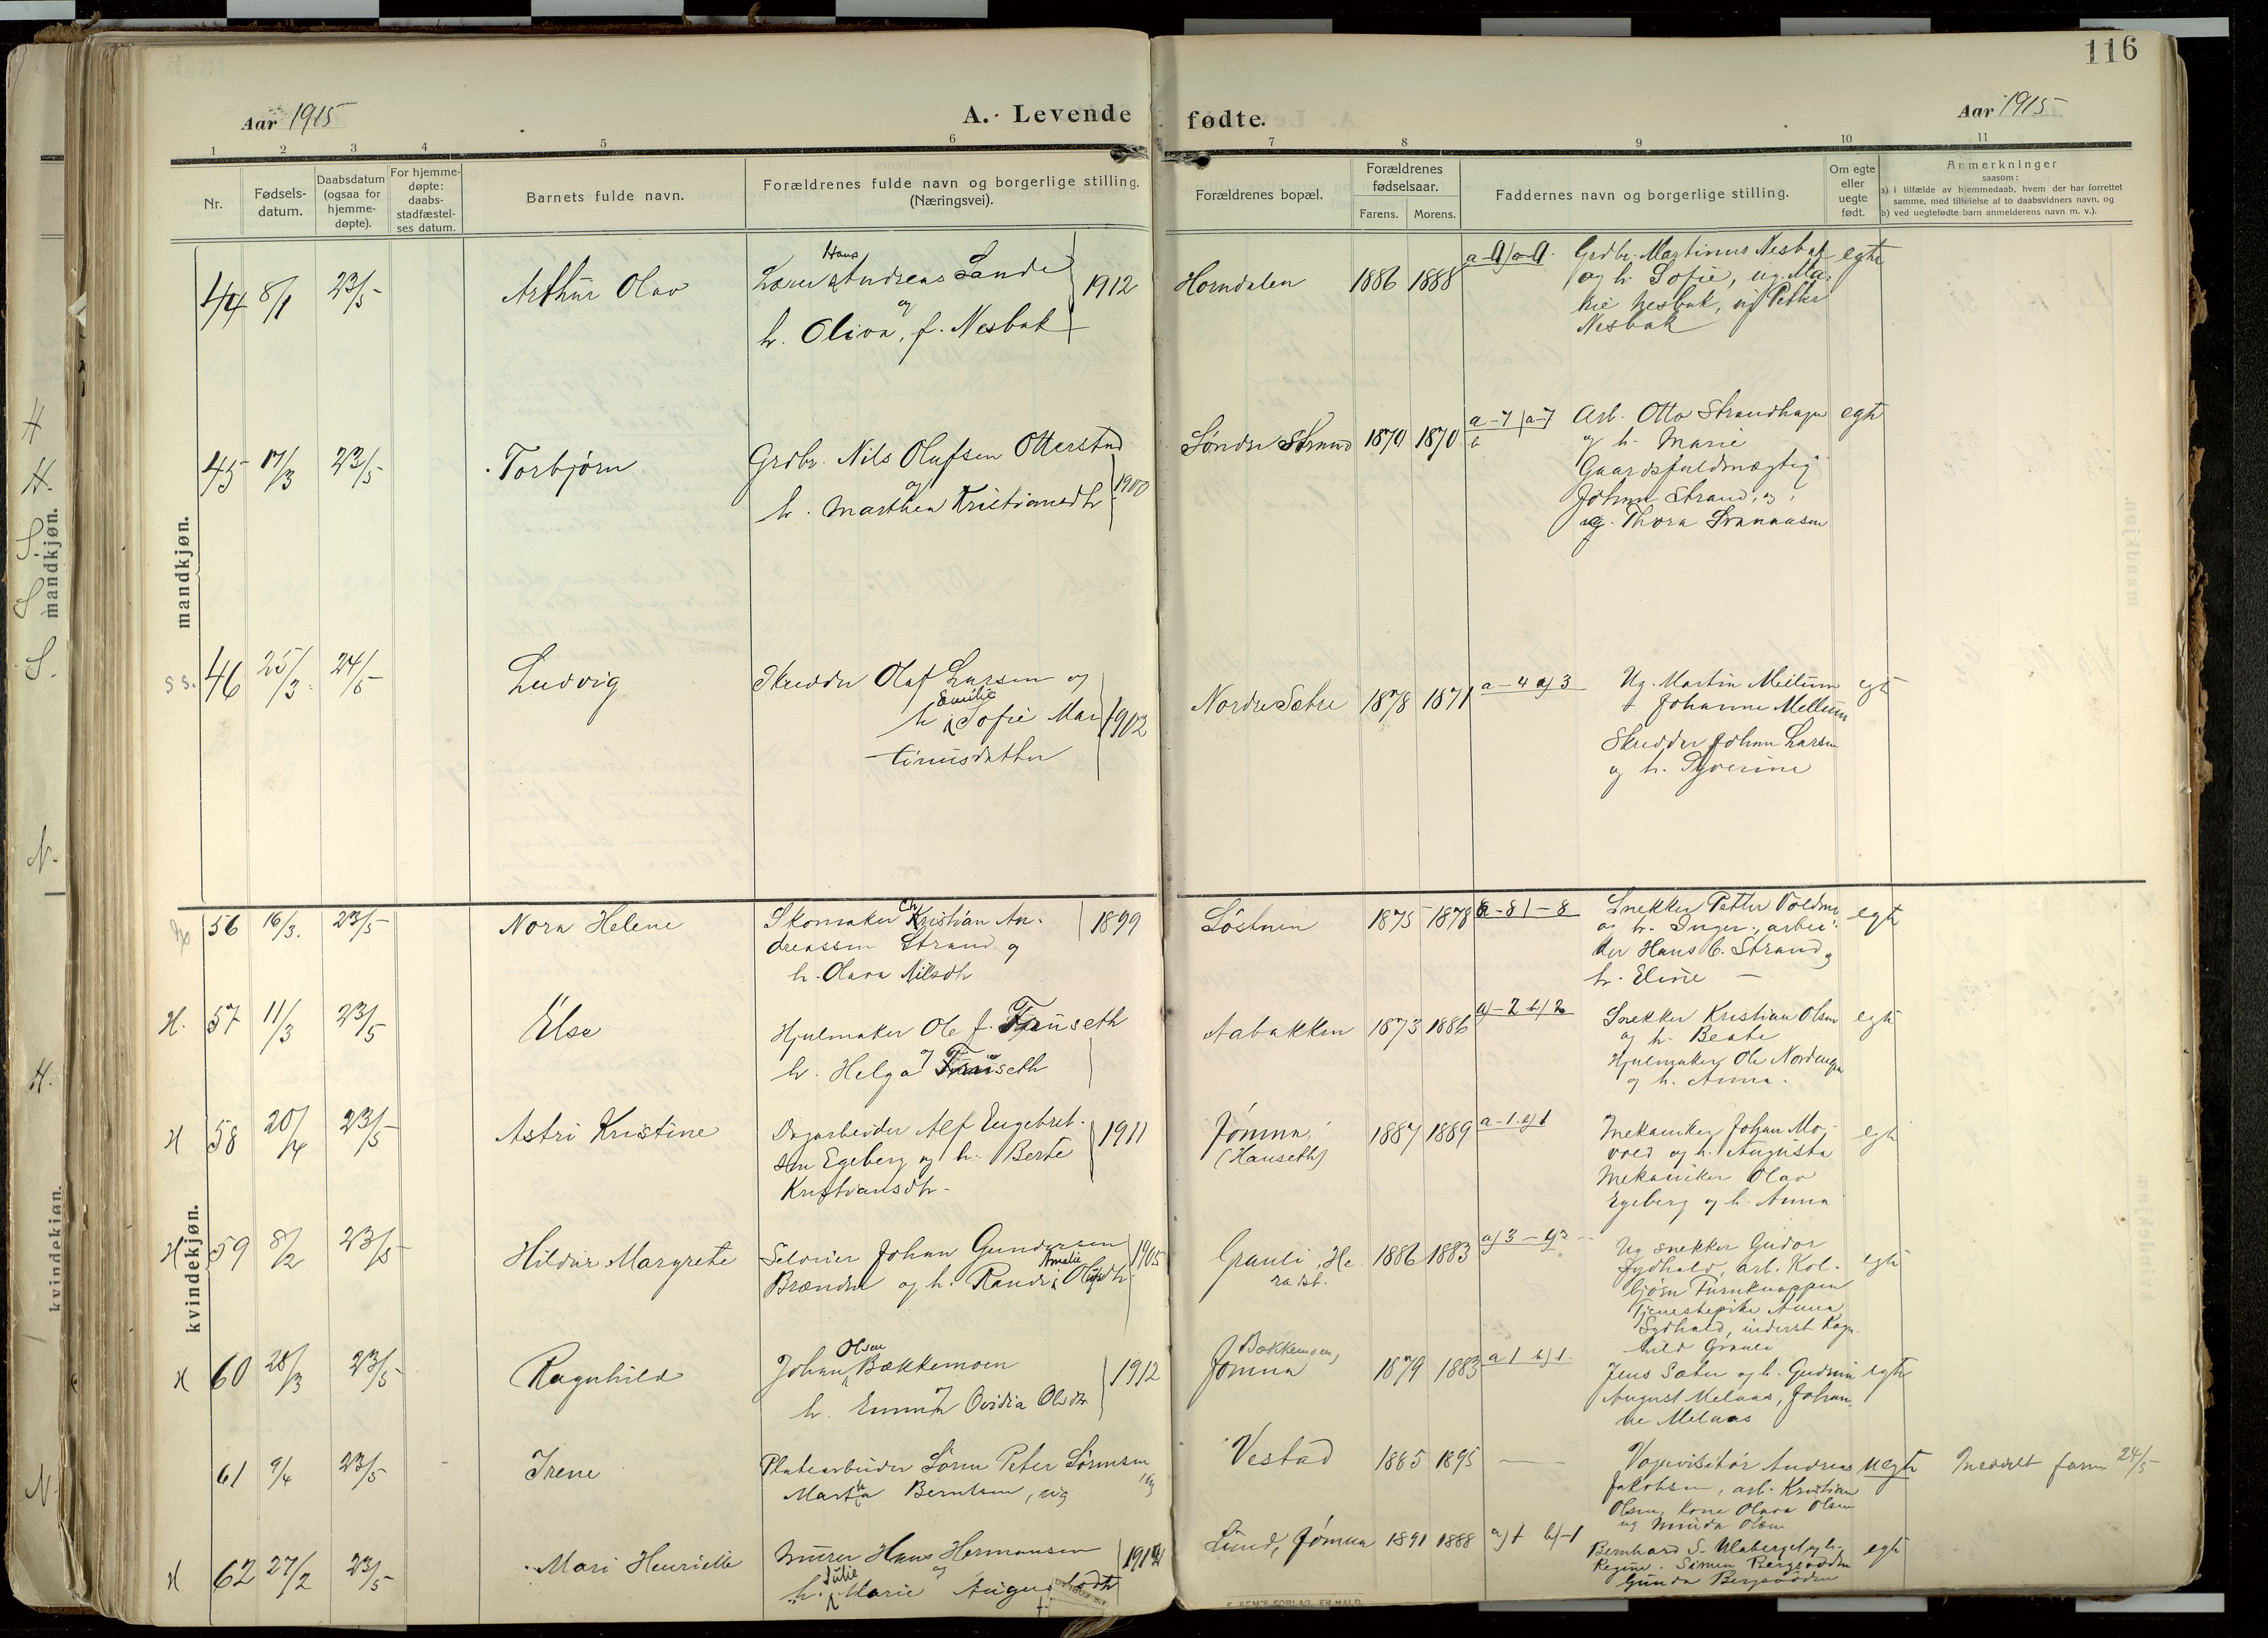 116
Aar 1915
A. Levende fødte.
Aar 1915
1 2 3 4 5 6 7 8 9 10 11
Nr.
Fødsels-
datum.
Daabsdatum
(ogsaa for
hjemme-
døpte).
For hjemme-
døpte:
daabs-
stadfæstel-
ses datum.
Barnets fulde navn.
Forældrenes fulde navn og borgerlige stilling.
(Næringsvei).
Forældrenes bopæl.
Forældrenes
fødselsaar.
Farens. Morens.
Faddernes navn og borgerlige stilling.
Om egte
eller
uegte
født.
Anmerkninger
saasom:
a) i tilfælde av hjemmedaab, hvem der har forrettet
samme, med tilføielse af to daabsvidners navn, og
b) ved uegtefødte barn anmelderens navn m. v.).
mandkjøn.
44 8/1 23/5 Arthur Olav
Hans
Andreas Sande
og
h. Oliva, f. Nesbak
1912
Horndalen 1886 1888
Grdbr. Martinus Nesbak
og h. Sofie, ug. Ma-
rie Nesbak, ug Petter
Nesbak
egte
45 17/3 23/5 Torbjørn
Grdbr. Nils Olafsen Otterstad
og
h. Marthea Kristiansdtr
1900
Søndre Strand 1870 1870 a-7 a-7
Arb. Otto Strandhagen
og h. Marie
Gaardsfuldmægtig
Johan Strand, og
ug. Thora Svenaasen
egte
S S. 46 25/3 24/5 Ludvig
Skredder Olaf Larsen og
Emilie
h. Sofie Mar
tinusdatter
1902
Nordre Sætre 1878 1871 a-4 a) 3
Ug. Martin Mellum
Johanne Mellum
Skredder Johan Larsen
og h. Syverine
egte
kvindekjøn.
56 16/3. 23/5 Nora Helene
Skomaker Kristian An-
dreassen Strand og
h. Olava Nilsdtr
1899
Løstuen 1875 1878 a-8 -8
Snekker Petter Voldmo
og h. Inger, arbei-
der Hans C. Strand og
h. Eline
egte
H. 57 11/3 23/5 Else
Hjulmaker Ole J. Fruseth
og
h. Helga Fruseth
Aabakken 1873 1886 a)-2 b) 2
Snekker Kristian Olsen
og h. Beate
Hjulmaker Ole Nordengen
og h. Anna.
egte
H 58 20/4 23/5 Astri Kristine
Dagarbeider Alf Engebret-
sen Egeberg og h. Berte
Kristiansdtr-
1911
Jømna,
(Hauseth)
1887 1889 a-1. b) 1
Mekaniker Johan Mo-
vold og h. Augusta
Mekaniker Olav
Egeberg og h. Anna
egte
H 59 8/2 23/5 Hildur Margrete
Seleier Johan Gundersen
Amalie
Brænden og h. Randi Olufsdtr
1905
Grauli, He
radsb.
1886 1883 a) 3
Ug snekker Gudor
Sydhald, arb. Kol-
bjørn Furuknappen
Tjenestepike Anna
Sydhald, inderst Ragn-
hild Grauli
egte
H 60 28/3 23/5 Ragnhild
Olsen
Johan Bækkemoen
og
h. Emma Ovidia Olsdtr.
1912
Bækkemoen,
Jømna
1879 1883 a 1 b) 1
Jens Sæter og h. Gudrun
August Melaas, Johan-
ne Melaas
egte
61 9/4 23/5 Irene
Platearbeider Søren Peter Sørensen
Martha Berntsen, ug
Vestad 1885 1895 —
Vognvisitør Andreas
Jakobsen, arb. Kristian
Olsen, kone Olava Olsen
ug Minda Olsen
uegte
Meddelt farm 24/5
H 62 27/2 23/5 Mari Henriette
Murer Hans Hermansen
og
Julie
h. Marie
Lund, Jømna 1891 1888 a) 1 b)-1
Bernhard S. Ulaberget og h.
Regine. Simen Bergsodden
Gunda Bergsodden
egte
E. SEM'S FORLAG, FR.HALD